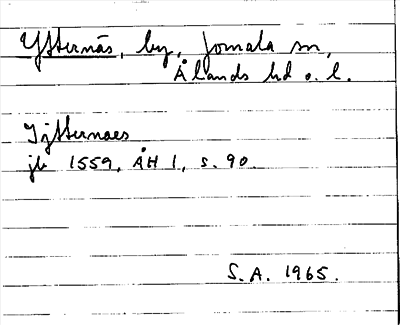 Ytternäs, by, Jomala sn,
Ålands hd o. l.
Ytternaes
jb 1559, ÅH 1, s. 90.
S.A. 1965.